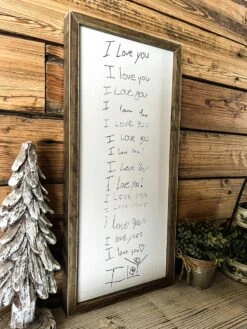 I Love you
I love you
I Love you
I love You
I LOVE YOU
I Love you
I love you!
I Love You
I love you!
I LOVE YOU
I LOVE YOU
I
I love you
I love you♡
I